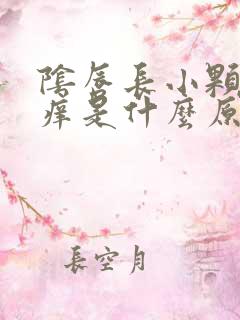 陰唇長小顆
癢是什麼原
長空月